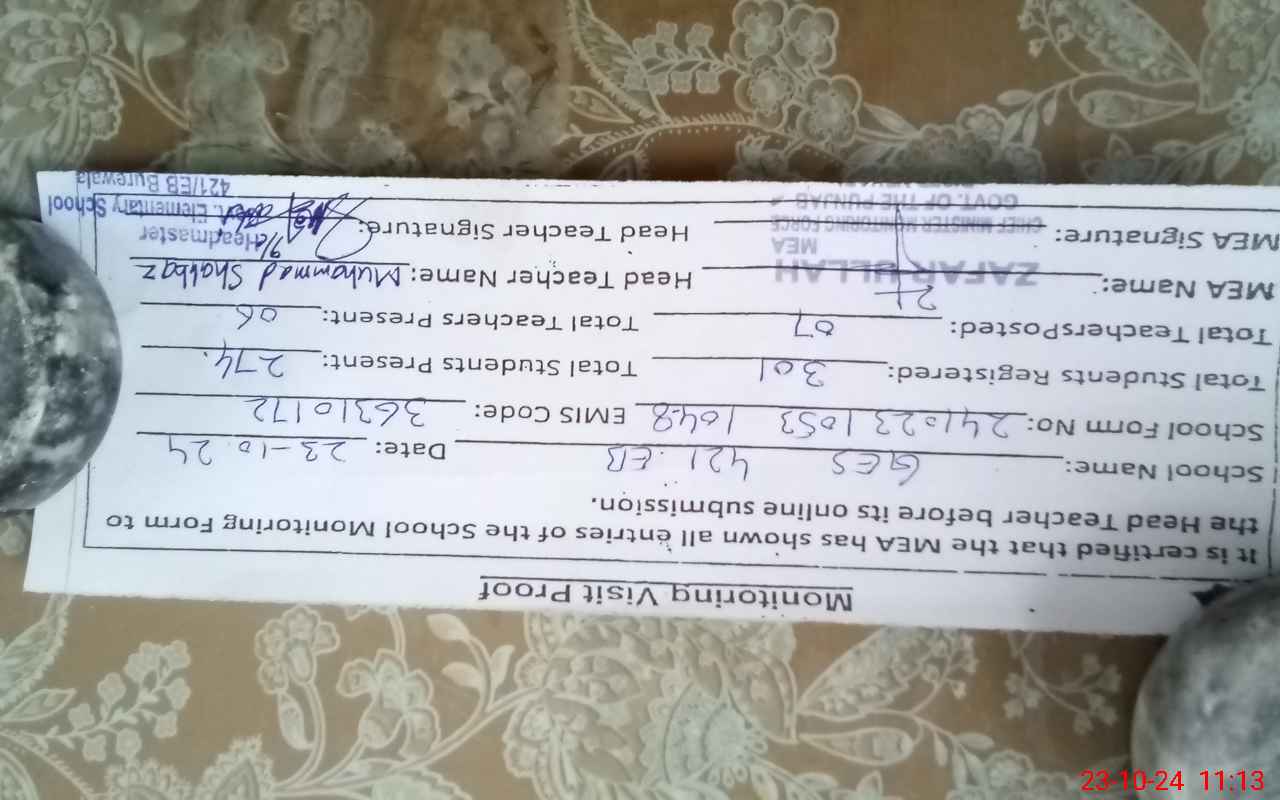 Monitoring Visit Proof
It is certified that the MEA has shown all entries of the School Monitoring Form to
the Head Teacher before its online submission.
School Name: GES 421.EB Date: 23-10.24
School Form No: 241023 1053 1048 EMIS Code: 36310172
Total Students Registered: 301 Total Students Present: 274
Total TeachersPosted: 07 Total Teachers Present: 06
MEA Name: ZAFAR ULLAH Head Teacher Name: Muhammad Shahbaz
MEA
MEA Signature: Head Teacher Signature:
CHIEF MINISTER MONITORING FORCE
GOVT. OF THE PUNJAB
Headmaster
Elementary School
421/EB Burewala
23-10-24 11:13